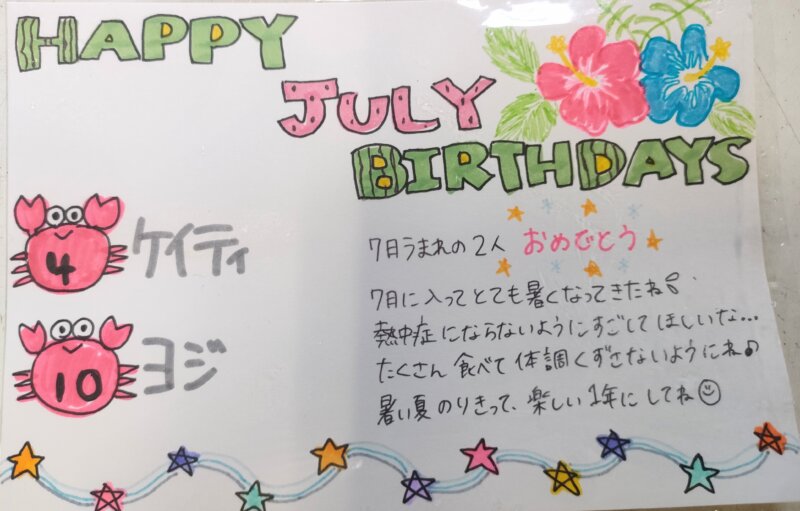 HAPPY
JULY
BIRTHDAYS
4 ケイティ
10 ヨジ
7月うまれの2人 おめでとう
7月に入ってとても暑くなってきたね
熱中症にならないようにすごしてほしいな...
たくさん食べて体調くずさないようにね♪
暑い夏のりきって、楽しい1年にしてね☺